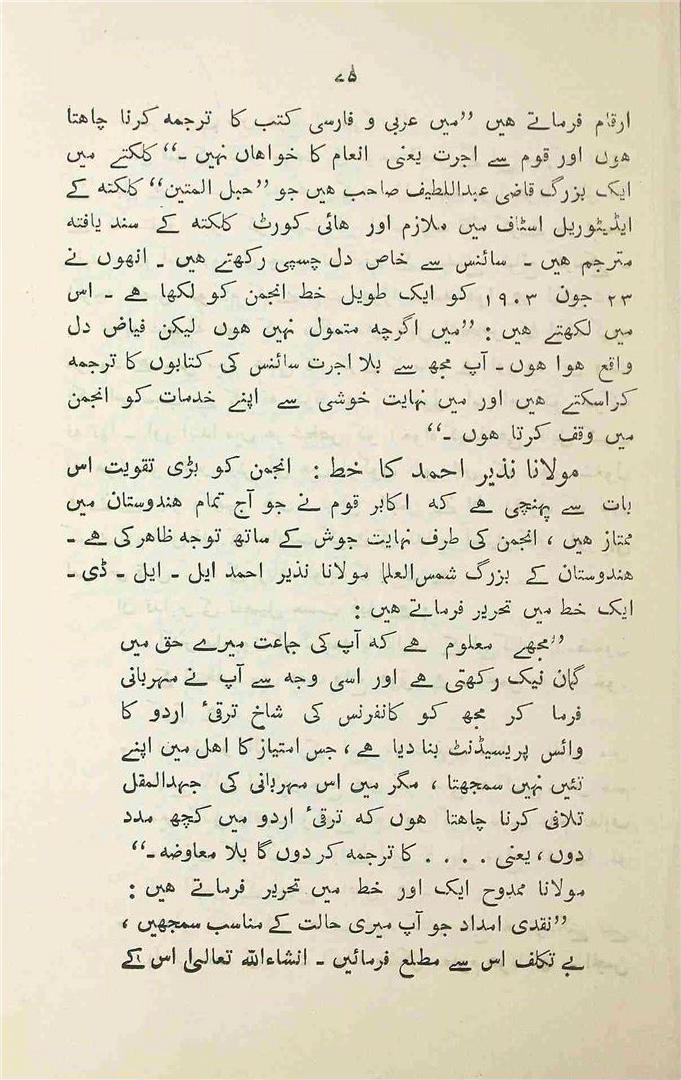 ۷۵
ارقام فرماتے ہیں ”میں عربی و فارسی کتب کا ترجمہ کرنا چاہتا
ہوں اور قوم سے اجرت یعنی انعام کا خواہاں نہیں ۔“ کلکتے میں
ایک بزرگ قاضی عبداللطیف صاحب ہیں جو ”حبل المتین“ کلکتہ کے
ایڈیٹوریل اسٹاف میں ملازم اور ہائی کورٹ کلکتہ کے سند یافتہ
مترجم ہیں ۔ سائنس سے خاص دل چسپی رکھتے ہیں ۔ انھوں نے
۲۳ جون ۱۹۰۳ کو ایک طویل خط انجمن کو لکھا ہے ۔ اس
میں لکھتے ہیں : ”میں اگرچہ متمول نہیں ہوں لیکن فیاض دل
واقع ہوا ہوں ۔ آپ مجھ سے بلا اجرت سائنس کی کتابوں کا ترجمہ
کراسکتے ہیں اور میں نہایت خوشی سے اپنے خدمات کو انجمن
میں وقف کرتا ہوں ۔“
مولانا نذیر احمد کا خط : انجمن کو بڑی تقویت اس
بات سے پہنچی ہے کہ اکابر قوم نے جو آج تمام ہندوستان میں
ممتاز ہیں ، انجمن کی طرف نہایت جوش کے ساتھ توجہ ظاہر کی ہے ۔
ہندوستان کے بزرگ شمس‌العلما مولانا نذیر احمد ایل ۔ ایل ۔ ڈی ۔
ایک خط میں تحریر فرماتے ہیں :
”مجھے معلوم ہے کہ آپ کی جماعت میرے حق میں
گمان نیک رکھتی ہے اور اسی وجہ سے آپ نے مہربانی
فرما کر مجھ کو کانفرنس کی شاخ ترقیٔ اردو کا
وائس پریسیڈنٹ بنا دیا ہے ، جس امتیاز کا اہل میں اپنے
تئیں نہیں سمجھتا ، مگر میں اس مہربانی کی جہدالمقل
تلافی کرنا چاہتا ہوں کہ ترقیٔ اردو میں کچھ مدد
دوں ، یعنی . . . . کا ترجمہ کر دوں گا بلا معاوضہ ۔“
مولانا ممدوح ایک اور خط میں تحریر فرماتے ہیں :
”نقدی امداد جو آپ میری حالت کے مناسب سمجھیں ،
بے تکلف اس سے مطلع فرمائیں ۔ انشاءاللہ تعالیٰ اس کے